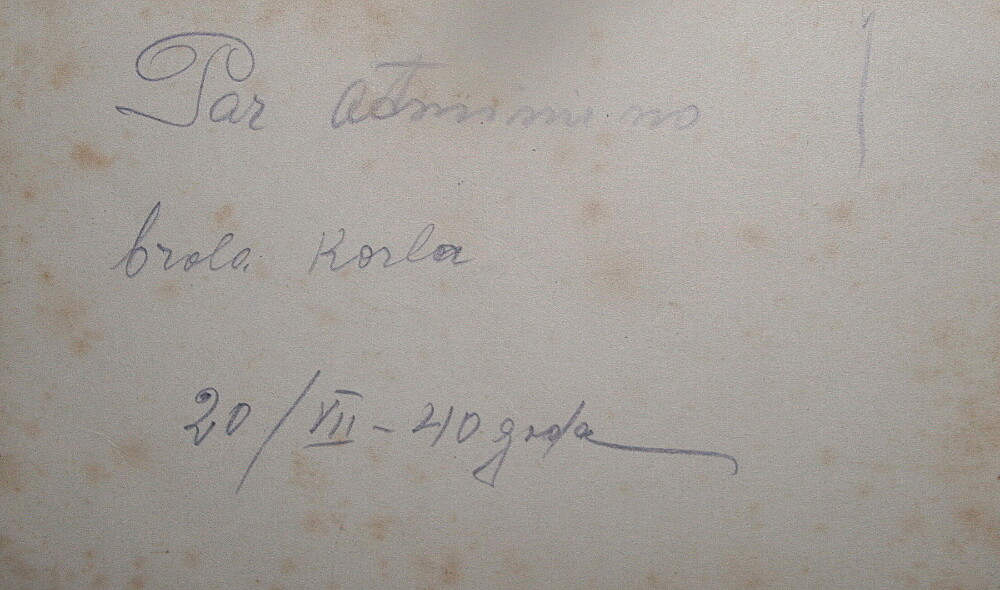 Par atminu no
brola Korla
20/VII - 40 goda